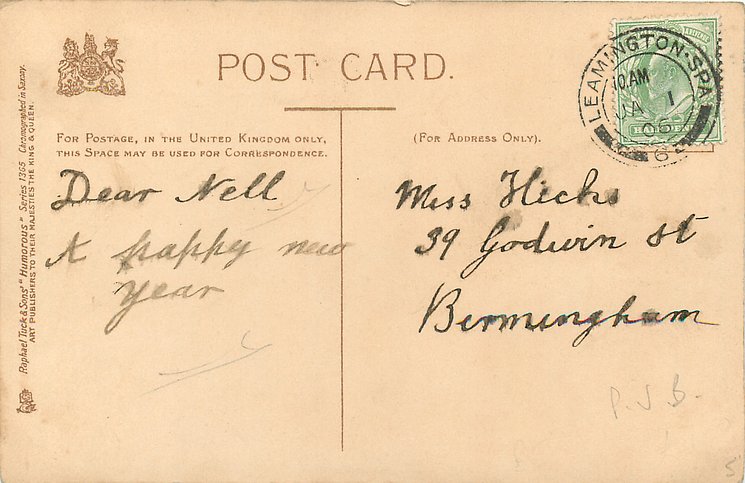 POST CARD.
FOR POSTAGE, IN THE UNITED KINGDOM ONLY,
THIS SPACE MAY BE USED FOR CORRESPONDENCE.
(FOR ADDRESS ONLY).
Raphael Tuck & Sons' "Humorous" Series 1365 Chromographed in Saxony.
ART PUBLISHERS TO THEIR MAJESTIES THE KING & QUEEN.
LEAMINGTON·SPA
10.AM
JA 1
Dear Nell
A happy new
year
Miss Hicks
39 Godwin st
Birmingham
P.J.B.
5